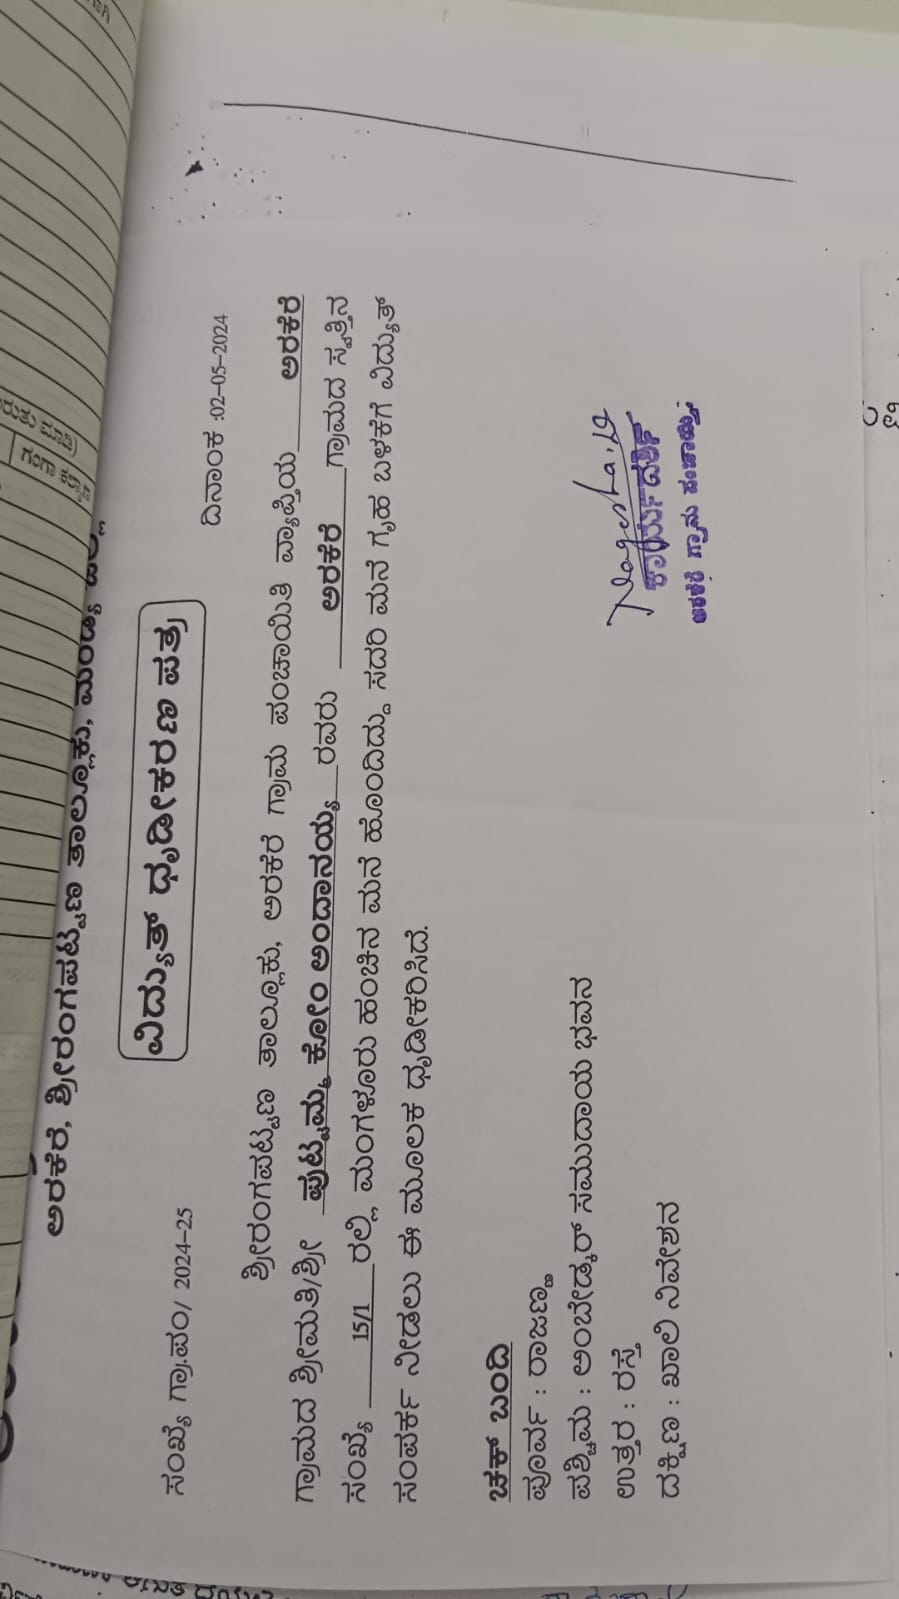 ಅರಕೆರೆ, ಶ್ರೀರಂಗಪಟ್ಟಣ ತಾಲ್ಲೂಕು, ಮಂಡ್ಯ ಜಿಲ್ಲೆ
ವಿದ್ಯುತ್ ಧೃಡೀಕರಣ ಪತ್ರ
ಸಂಖ್ಯೆ ಗ್ರಾ.ಪಂ/ 2024-25 ದಿನಾಂಕ :02-05-2024
ಶ್ರೀರಂಗಪಟ್ಟಣ ತಾಲ್ಲೂಕು, ಅರಕೆರೆ ಗ್ರಾಮ ಪಂಚಾಯಿತಿ ವ್ಯಾಪ್ತಿಯ ಅರಕೆರೆ
ಗ್ರಾಮದ ಶ್ರೀಮತಿ/ಶ್ರೀ ಪುಟ್ಟಮ್ಮ ಕೋಂ ಅಂದಾನಯ್ಯ ರವರು ಅರಕೆರೆ ಗ್ರಾಮದ ಸ್ವತ್ತಿನ
ಸಂಖ್ಯೆ 15/1 ರಲ್ಲಿ ಮಂಗಳೂರು ಹಂಚಿನ ಮನೆ ಹೊಂದಿದ್ದು ಸದರಿ ಮನೆ ಗೃಹ ಬಳಕೆಗೆ ವಿದ್ಯುತ್
ಸಂಪರ್ಕ ನೀಡಲು ಈ ಮೂಲಕ ಧೃಡೀಕರಿಸಿದೆ.
ಚಕ್ ಬಂದಿ
ಪೂರ್ವ : ರಾಜಣ್ಣಾ
ಪಶ್ಚಿಮ : ಅಂಬೇಡ್ಕರ್ ಸಮುದಾಯ ಭವನ
ಉತ್ತರ : ರಸ್ತೆ
ದಕ್ಷಿಣ : ಖಾಲಿ ನಿವೇಶನ
ಕಾರ್ಯದರ್ಶಿ
ಅರಕೆರೆ ಗ್ರಾಮ ಪಂಚಾಯ್ತಿ
ಗಂಗಾ ಕಲ್ಯಾಣ